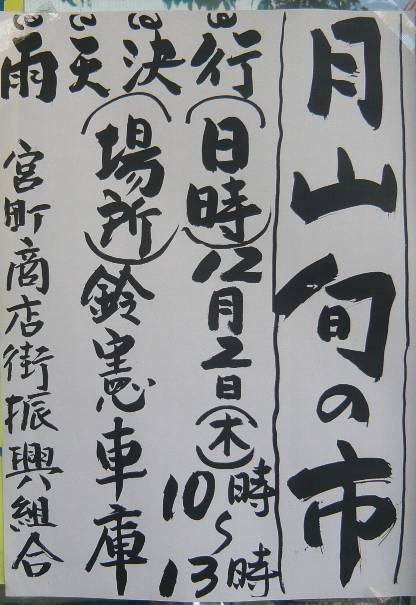 月山旬の市
雨天決行
(日時)12月2日(木)
10時〜13時
(場所)鈴憲車庫
宮町商店街振興組合